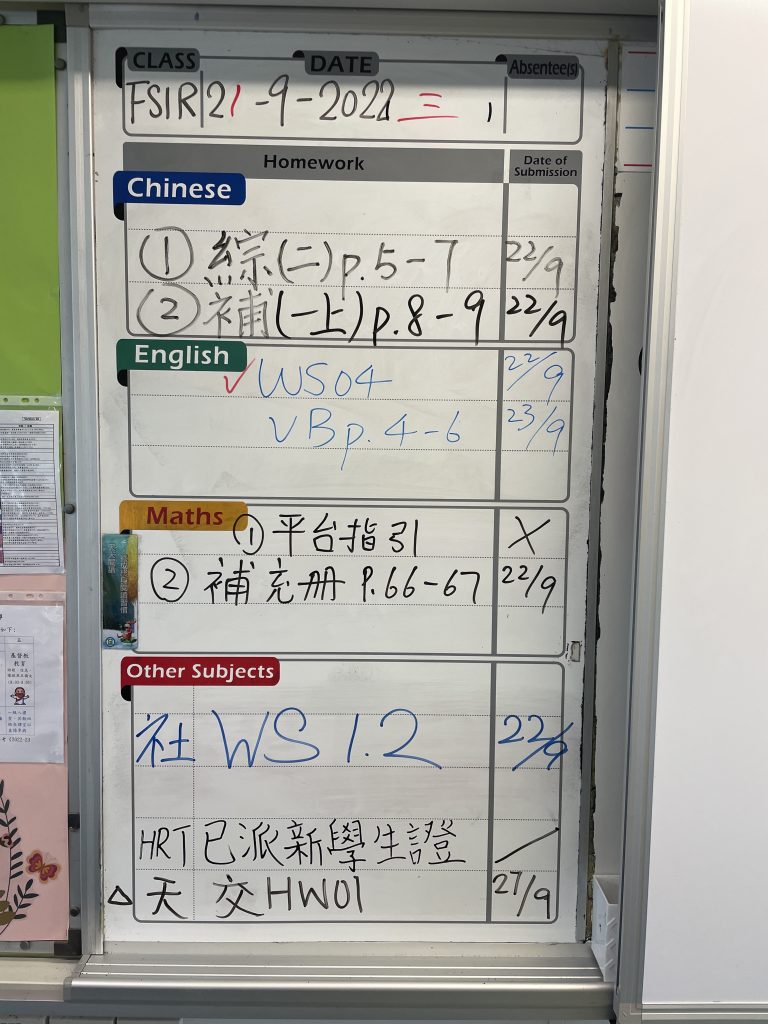 CLASS DATE Absentee(s)
FS1R 21-9-2022 三
Homework Date of Submission
Chinese
① 綜(二)p.5-7 22/9
② 補(一上)p.8-9 22/9
English
✓WS04 22/9
VBp.4-6 23/9
Maths
① 平台指引 X
② 補充册 P.66-67 22/9
Other Subjects
社 WS 1.2 22/9
HRT 已派新學生證 /
△ 天 交HW01 27/9
基督教
教育